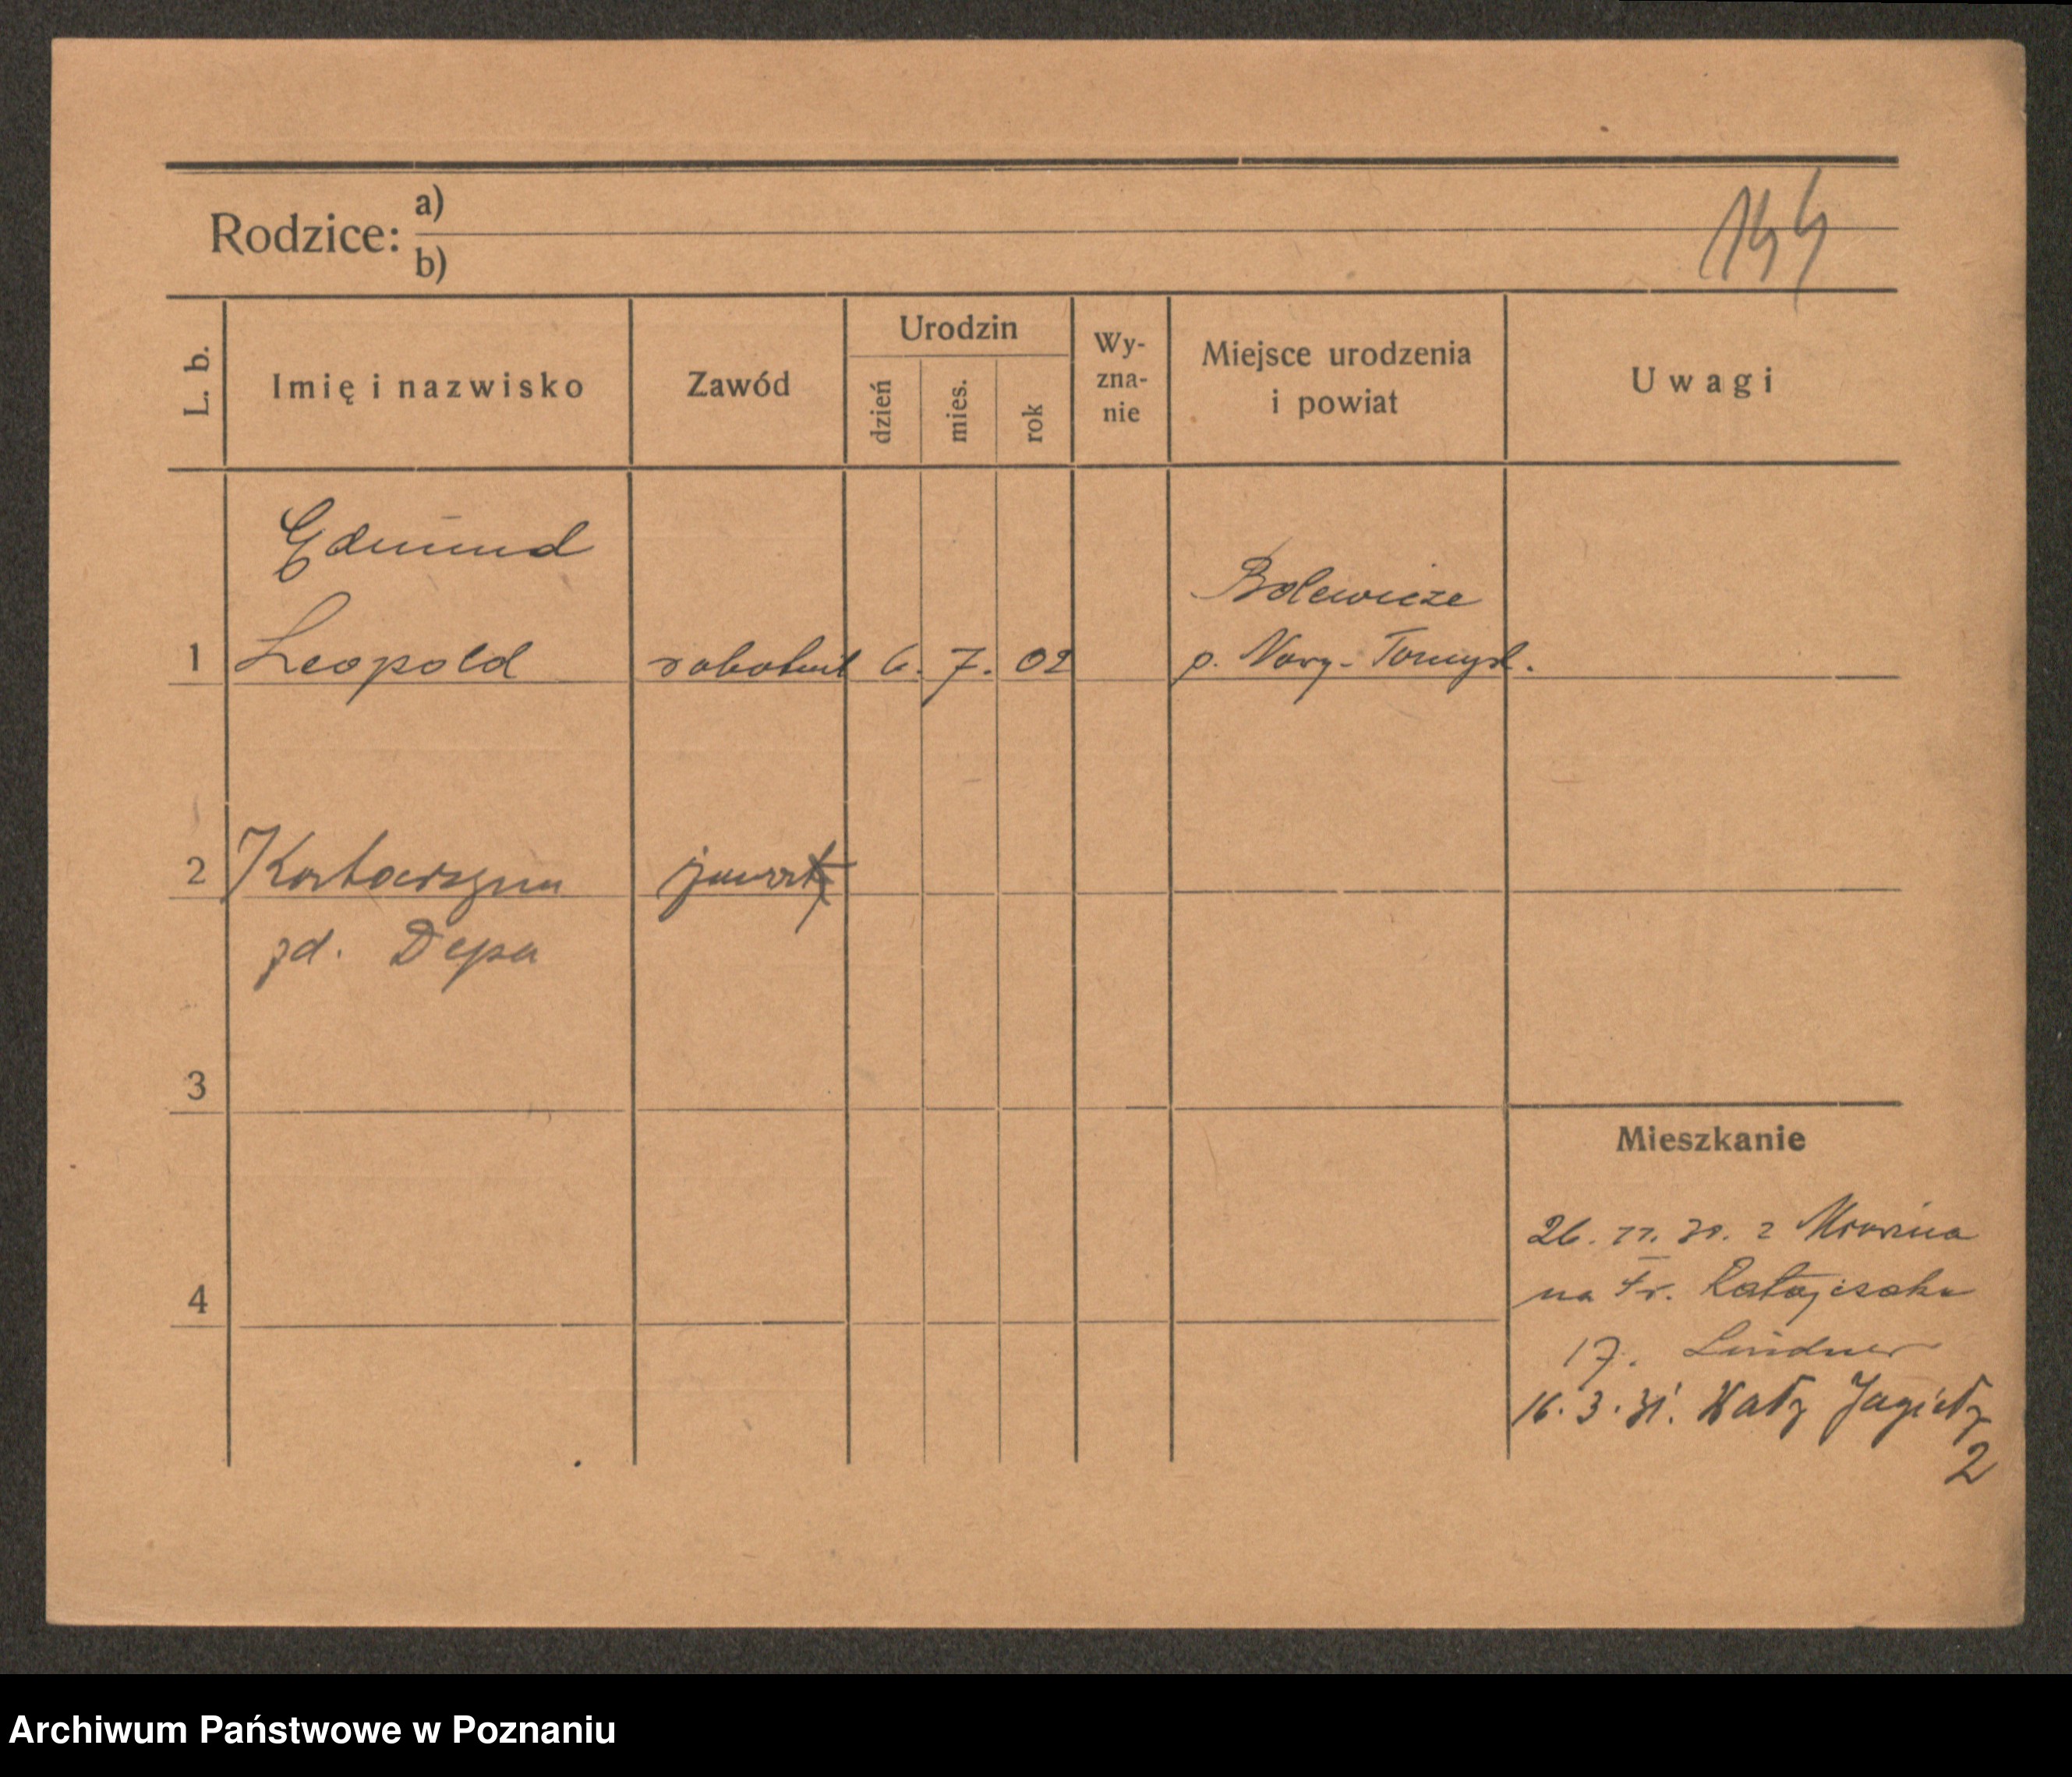 144
Rodzice: a)
b)
L. b.
Imię i nazwisko
Zawód
Urodzin
dzień
mies.
rok
Wy-
zna-
nie
Miejsce urodzenia
i powiat
Uwagi
Edmund
Bolewicze
1 Leopold robotnik 6. 7. 02 p. Nowy-Tomysl.
2 Katarzyna
zd. Depa
3
Mieszkanie
26. 11. 30. z Mrowina
4
na Fr. Ratajczaka
17. Lindner
16. 3. 31. Wały Jagiełły
2
Archiwum Państwowe w Poznaniu